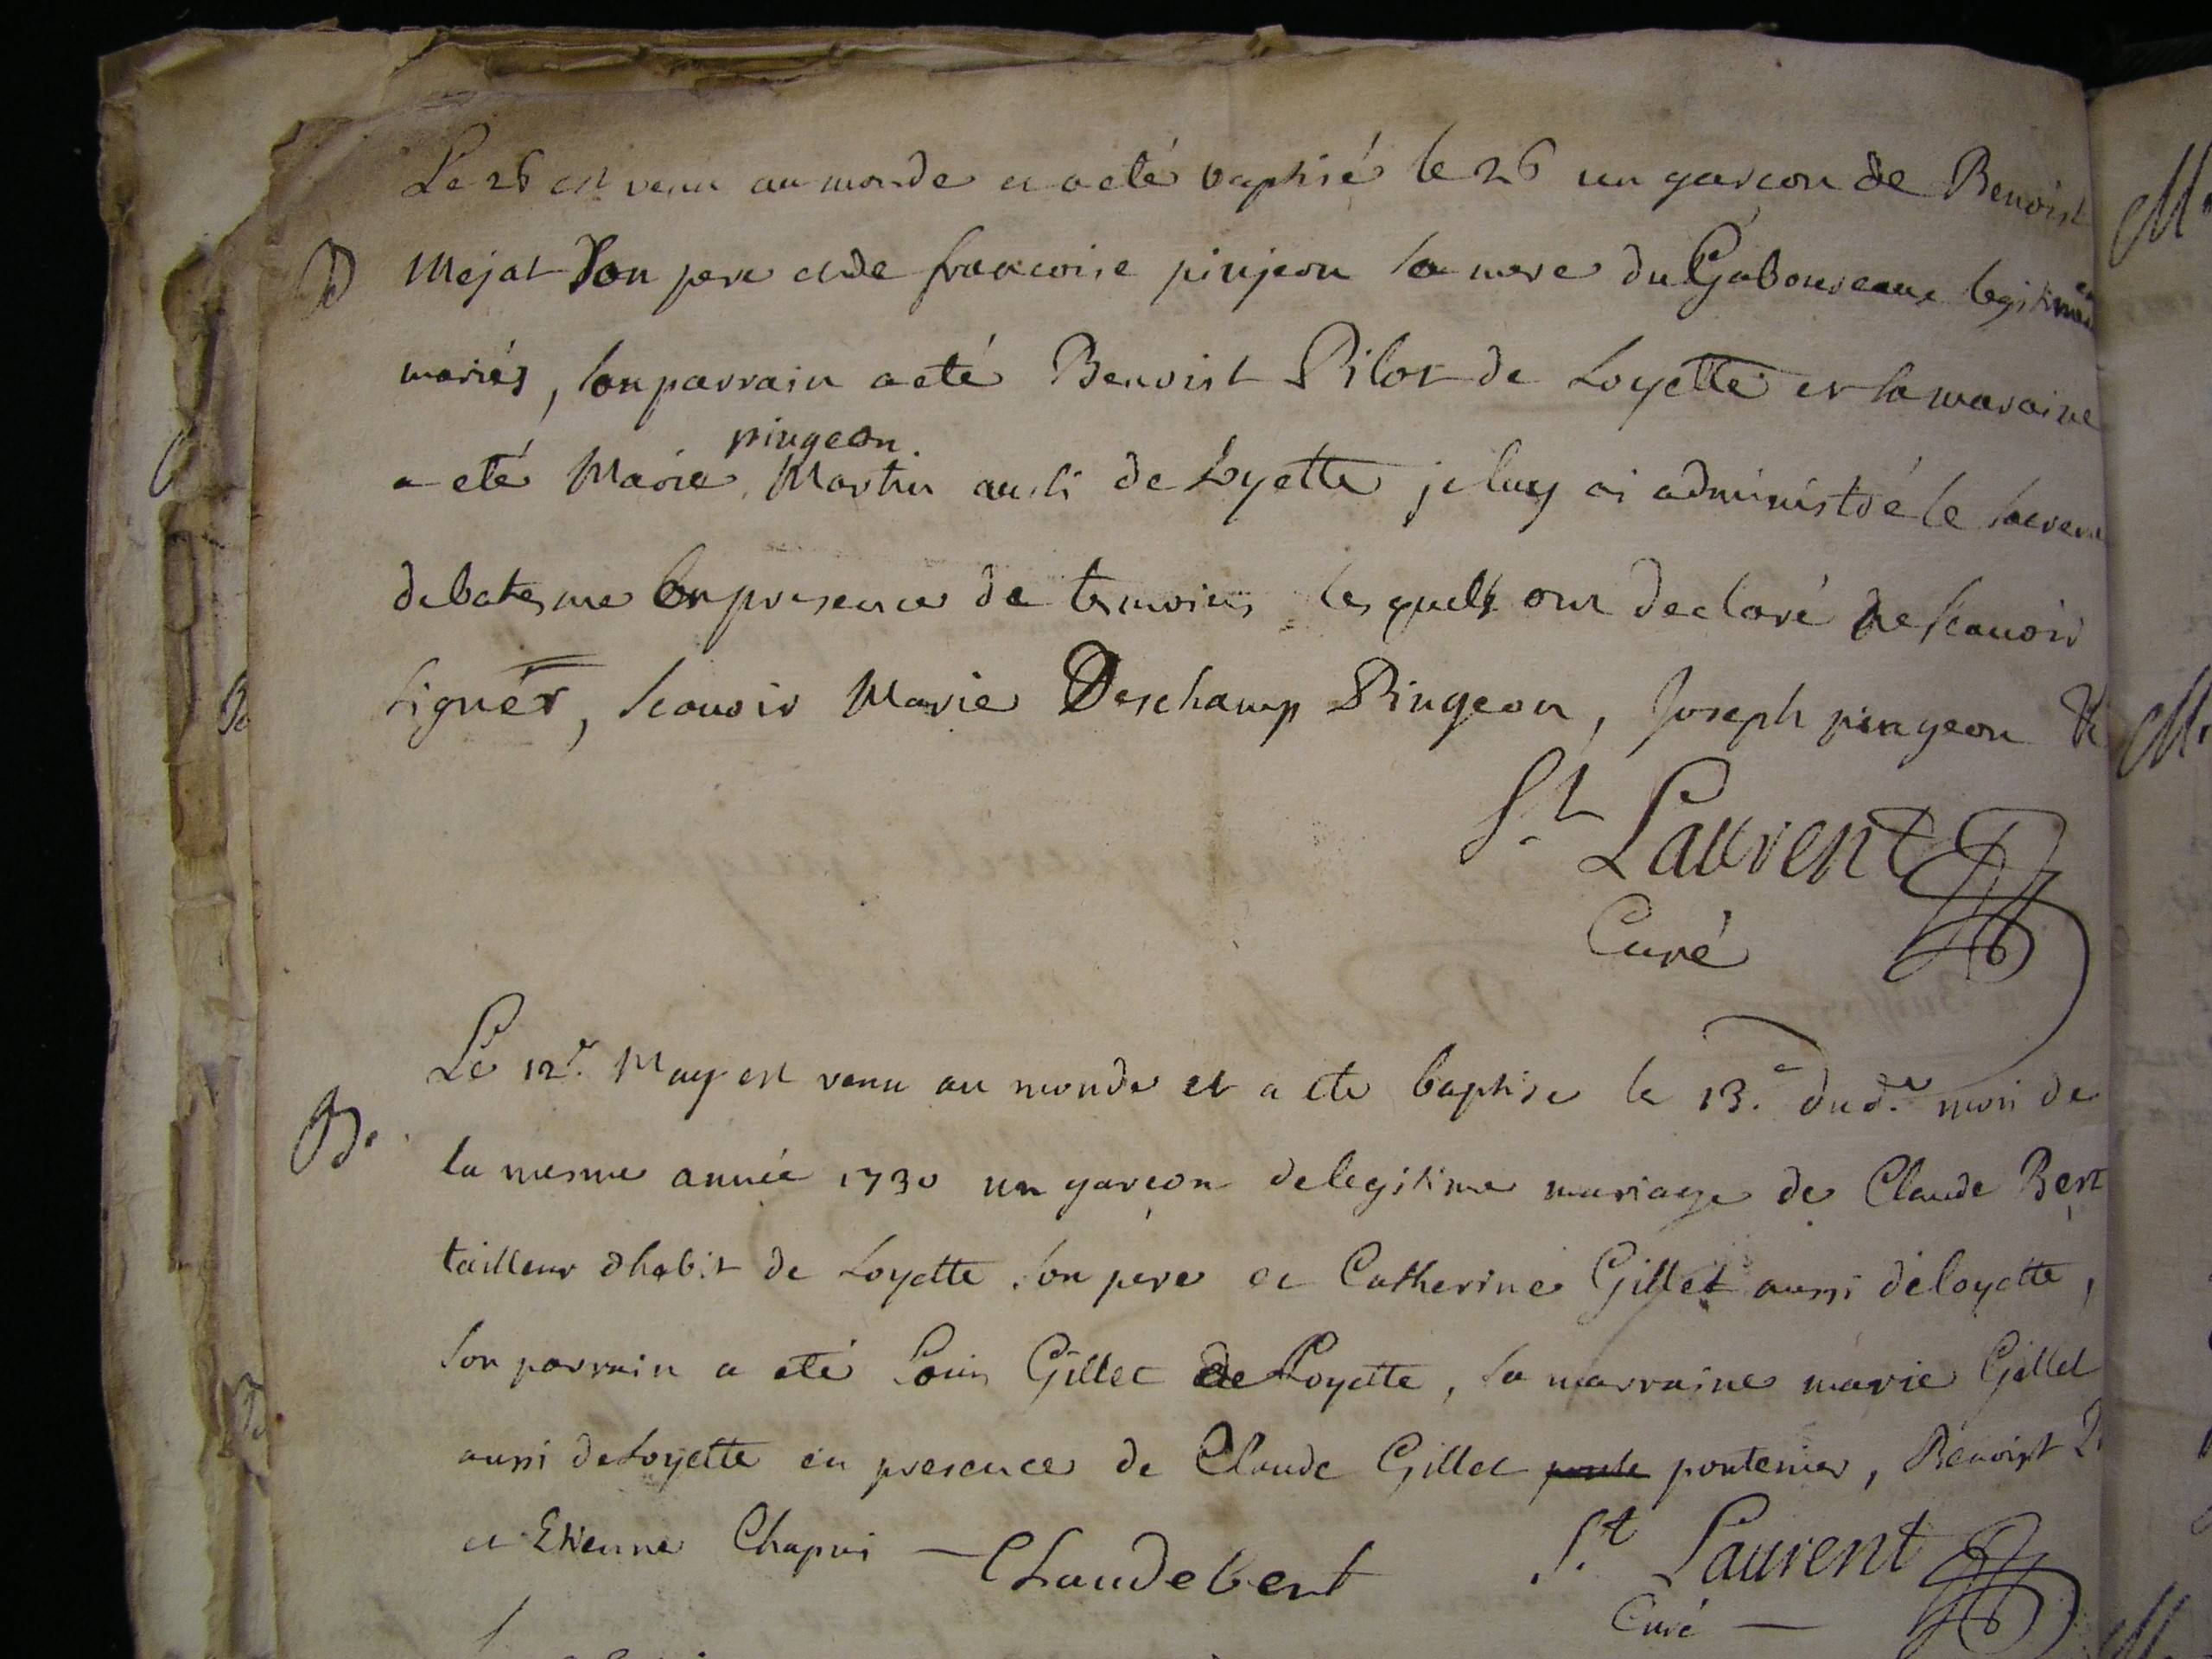 Le 26 est venu au monde et a eté baptisé le 26 un garcon de Benoist
B Mejat son pere et de francoise pinjeon sa mere du Gaboureaux legitime
mariés, son parrain a eté Benoist Pilot de Loyette et sa maraine
pingeon.
a eté Marie Martin aussi de Loyette je luy ai administré le sacrem
de batesme en presence de temoins lesquels ont declaré ne scauoir
signer, scauoir Marie Deschamp Pingeon, Joseph pingeon &
St Laurent
Curé
Le 12e. May est venu au monde et a ete baptise le 13.e dud.e mois de
B. la mesme année 1730 un garçon de legitime mariage de Claude Bert
tailleur dhabit de Loyette son pere et Catherine Gillet aussi de loyette,
son parrain a eté Louis Gillet de Loyette, sa marraine marie Gillet
aussi de Loyette en presence de Claude Gillet pontenier, Benoist
et Etienne Chapui — Claude bert
St Laurent
Curé —